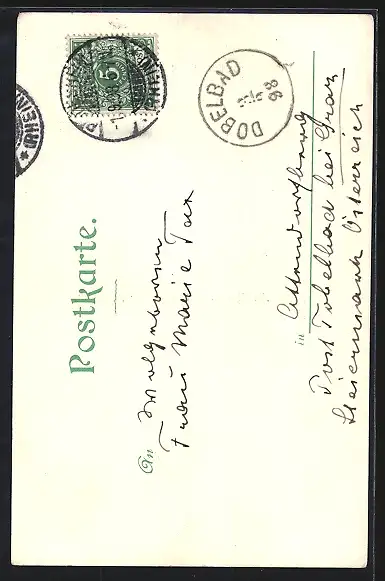 Postkarte.
5
DOBELBAD
98
An Wolgeboren
Frau Marie Tax
in Attendorfberg
Post Tobelbad bei Graz
Steiermark Österreich